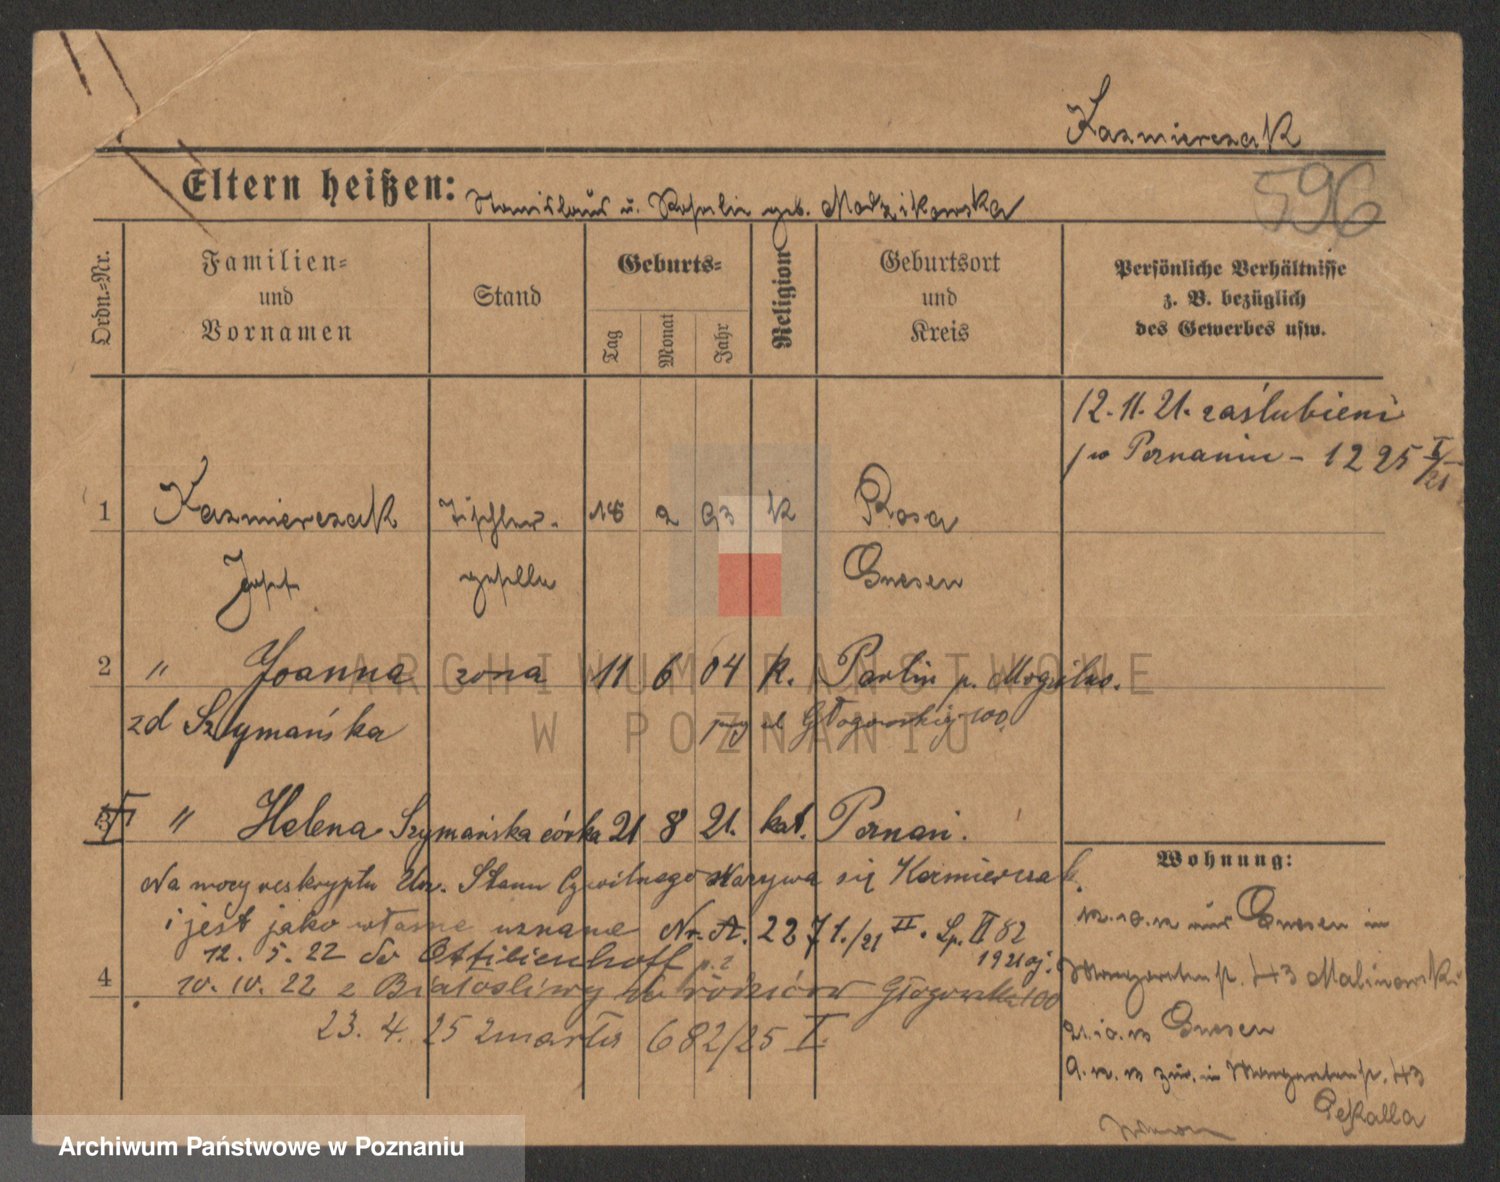 Kazmierczak
596
Eltern heißen: Stanislaus u. Rosalie geb. Modzikowska
Ordn.-Nr.
Familien-
und
Vornamen
Stand
Geburts-
Tag
Monat
Jahr
Religion
Geburtsort
und
Kreis
Persönliche Verhältnisse
z. B. bezüglich
des Gewerbes usw.
12. 11. 21. zaślubieni
w Poznaniu - 1225 I/21
1 Kazmierczak Tischler- 18 2 93 K Rosa
Josef geselle Gnesen
2 " Joanna żona 11 6 04 k. Parlin p. Mogilno.
zd Szymańska Głogowskiej 100
3 " Helena Szymańska córka 21 8 21. kat. Poznań.
Na mocy reskryptu Urz. Stanu Cywilnego nazywa się Kazmierczak
i jest jako własne uznane Nr. A. 2271./21 II. Lp. II 82
1921
12. 5. 22 do Ottilienhoff p. 2
4 10. 10. 22 z Białośliwy do rodziców Głogowska 100
23. 4. 25 zmarła 682/25 I.
Wohnung:
12. 10. 12 aus Gnesen in
Margaretenstr. 43 Malinowski
21. 10. Gnesen
9. 12. zur. in Margaretenstr. 43
Pekalla
ARCHIWUM PAŃSTWOWE
W POZNANIU
Archiwum Państwowe w Poznaniu